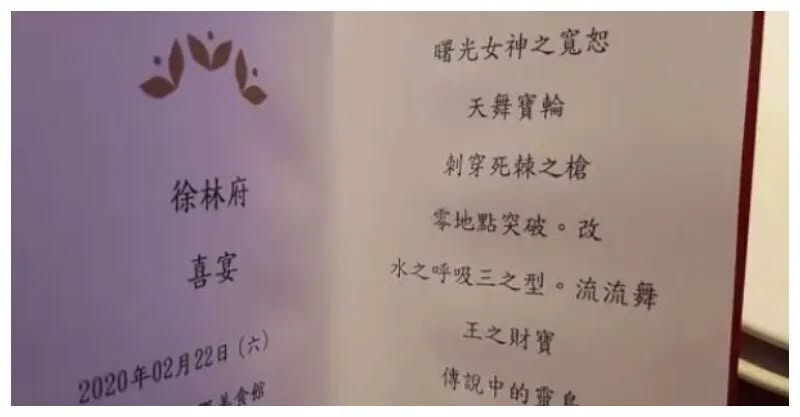 徐林府
喜宴
2020年02月22日(六)
美食館
曙光女神之寬恕
天舞寶輪
刺穿死棘之槍
零地點突破。改
水之呼吸三之型。流流舞
王之財寶
傳說中的靈鳥